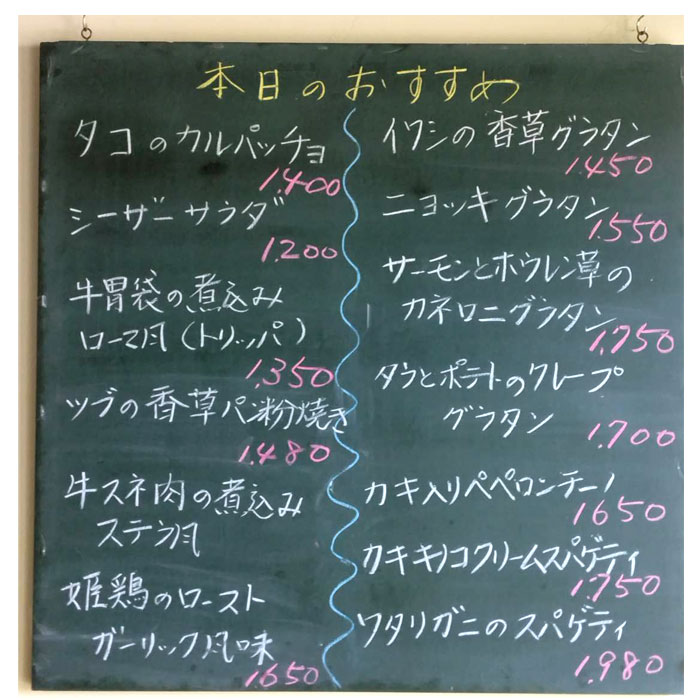 本日のおすすめ
タコのカルパッチョ
1.400
シーザーサラダ
1.200
牛胃袋の煮込み
ローマ風(トリッパ)
1.350
ツブの香草パン粉焼き
1.480
牛スネ肉の煮込み
姫鶏のロースト
ガーリック風味
1.650
イワシの香草グラタン
1.450
ニョッキグラタン
1.550
サーモンとホウレン草の
カネロニグラタン
1.750
タラとポテトのクレープ
グラタン
1.700
カキ入りペペロンチーノ
1650
カキキノコクリームスパゲティ
1.750
ワタリガニのスパゲティ
1.980